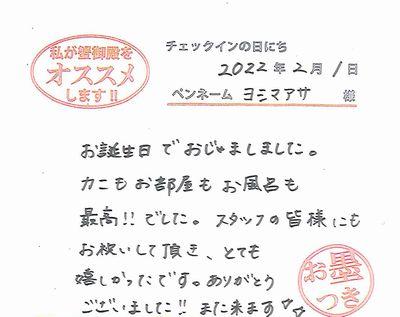 私が蟹御殿を
オススメ
します!!
チェックインの日にち
2022年2月1日
ペンネーム ヨシマアサ 様
お誕生日でおじゃましました。
カニもお部屋もお風呂も
最高!!でした。スタッフの皆様にも
お祝いして頂き、とても
嬉しかったです。ありがとう
ございました!!また来ます
お墨
つき